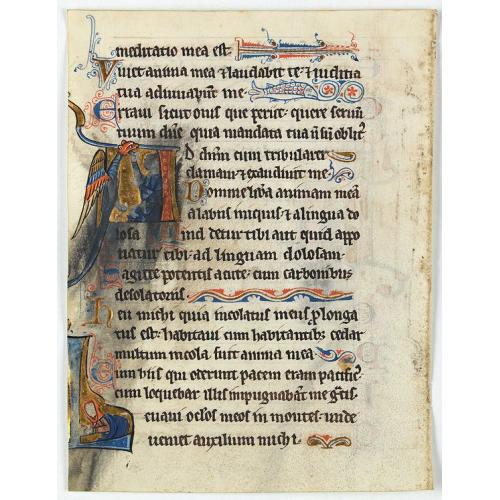 meditatio mea est
Viuet anima mea & laudabit te & iudicia
tua adiuuabunt me
Erraui sicut ouis que periit quere seruum
tuum dne quia mandata tua n sum oblit'
Ad dnm cum tribularer
clamaui & exaudiuit me
Domine liba animam meā
a labiis iniquis & a lingua do
losa Quid detur tibi aut quid appo
natur tibi ad linguam dolosam
Sagitte potentis acute cum carbonibus
desolatoriis
Heu michi quia incolatus meus prolonga
tus est habitaui cum habitantibus cedar
multum incola fuit anima mea
Cum hiis qui oderunt pacem eram pacific'
cum loquebar illis impugnabant me gratis
Leuaui oclos meos in montes unde
ueniet auxilium michi